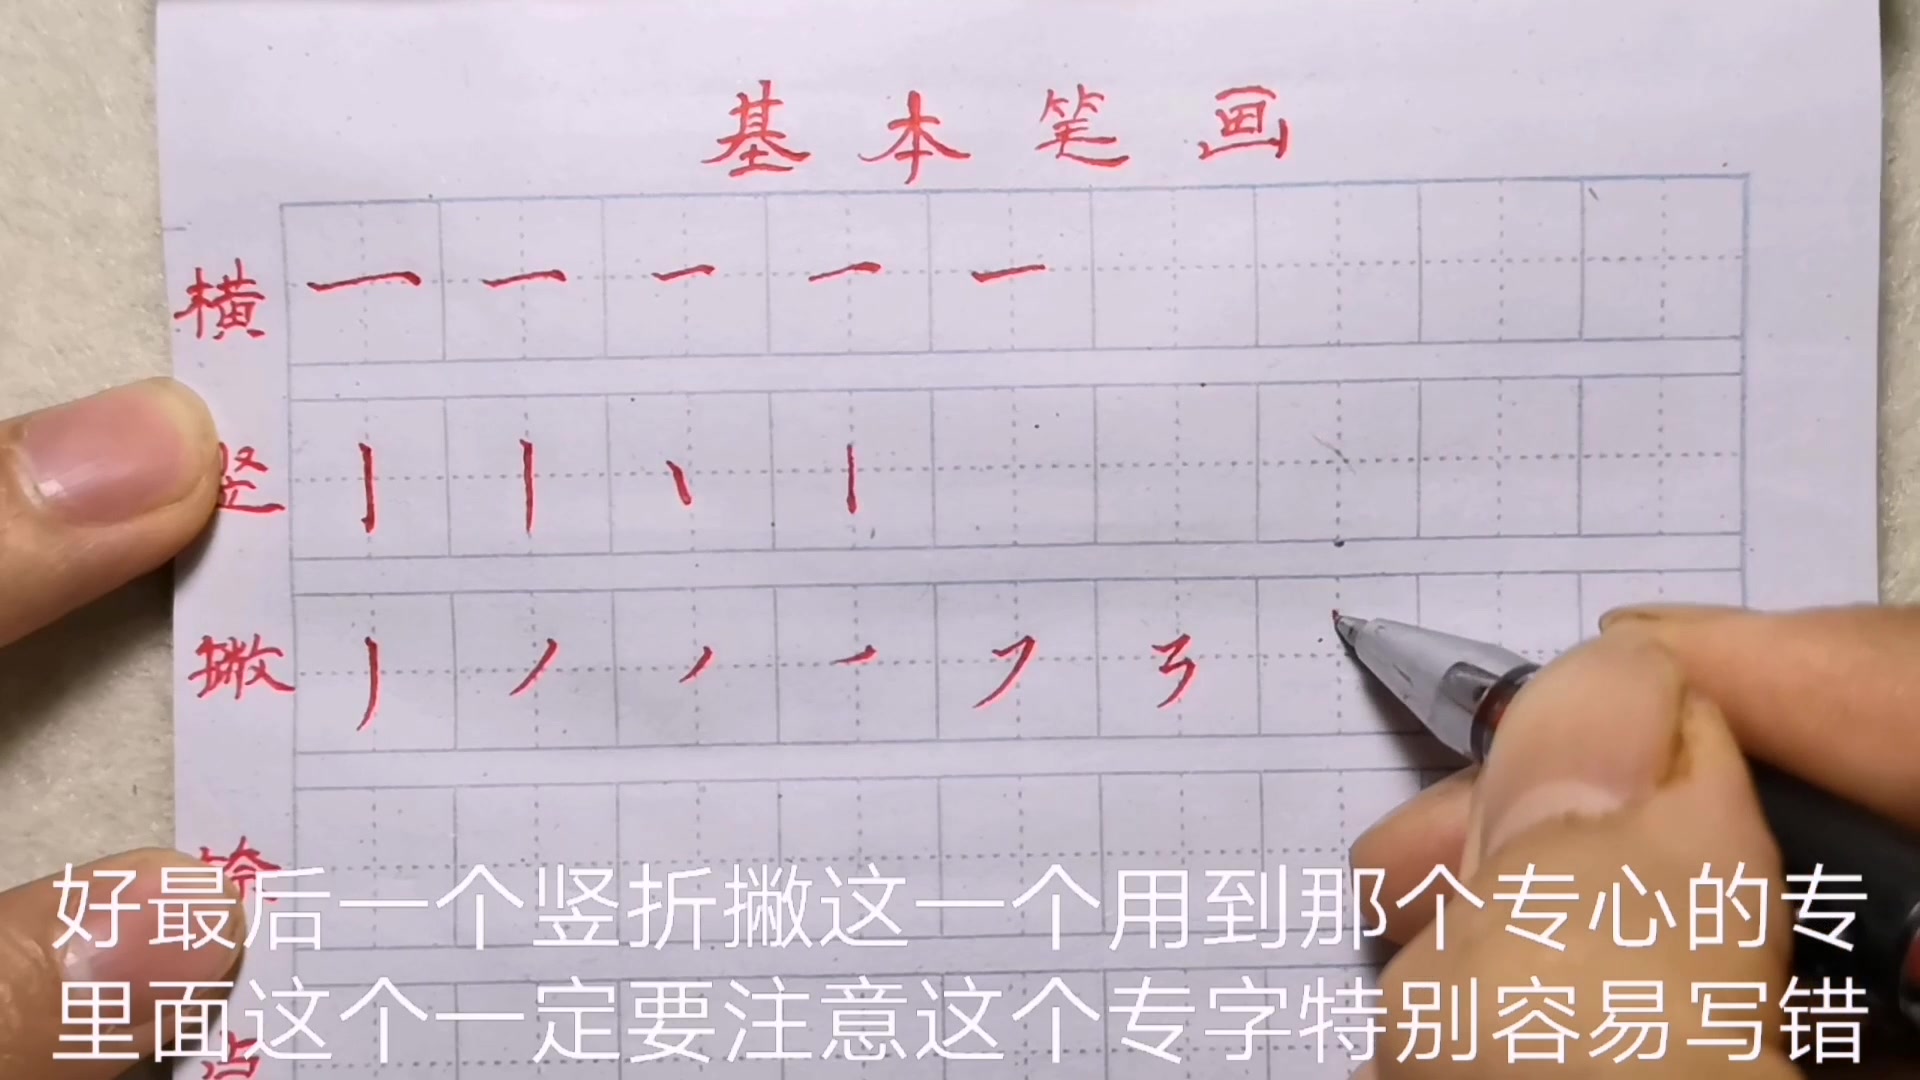 基本笔画
横
竖
撇
捺
点
好最后一个竖折撇这一个用到那个专心的专
里面这个一定要注意这个专字特别容易写错